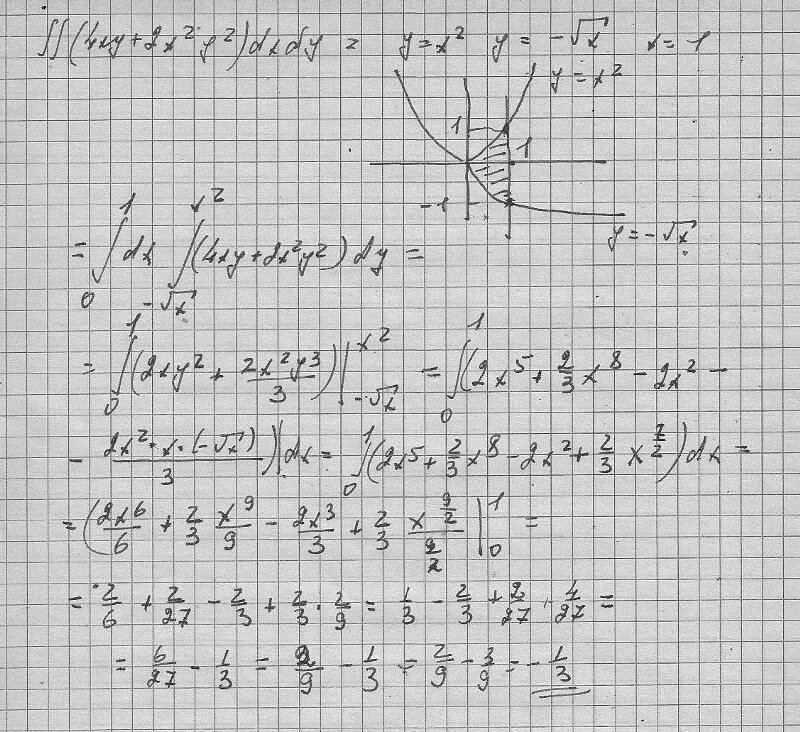 ∬(4xy + 2x²y²)dxdy = y = x² y = -√x x = 1
y = x²
1
1
-1
y = -√x
= ∫₀¹ dx ∫_{-√x}^{x²} (4xy + 2x²y²) dy =
= ∫₀¹ (2xy² + 2x²y³/3) |_{-√x}^{x²} = ∫₀¹ (2x⁵ + 2/3 x⁸ - 2x² -
- 2x²·x·(-√x)/3) dx = ∫₀¹ (2x⁵ + 2/3 x⁸ - 2x² + 2/3 x^{7/2}) dx =
= (2x⁶/6 + 2/3 x⁹/9 - 2x³/3 + 2/3 x^{9/2}/(9/2) |₀¹ =
= 2/6 + 2/27 - 2/3 + 2/3 · 2/9 = 1/3 - 2/3 + 2/27 + 4/27 =
= 6/27 - 1/3 = 2/9 - 1/3 = 2/9 - 3/9 = - 1/3